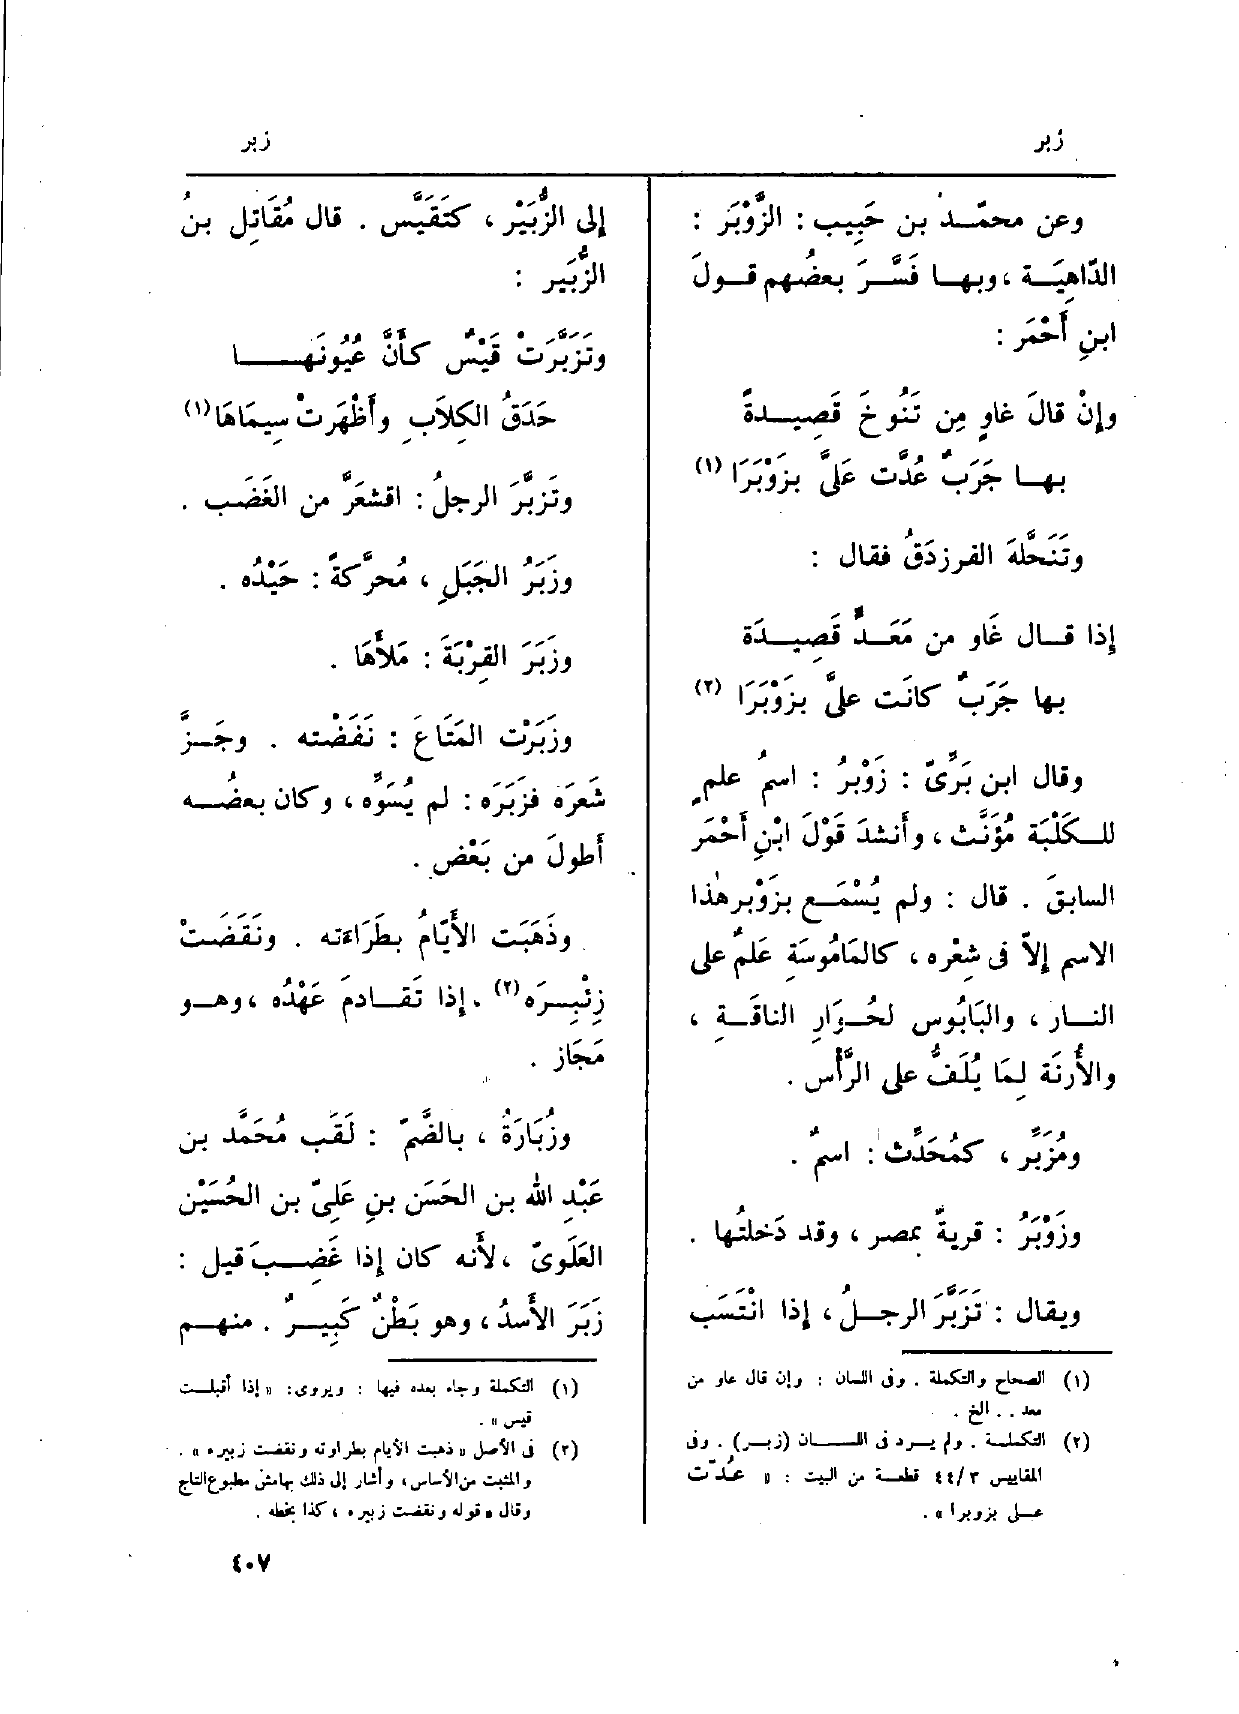 زبر
زبر
وعن محمّد بن حَبِيب : الزَّوْبَرَ :
الدّاهِيَة ، وبها فَسَّرَ بعضُهم قولَ
ابنِ أَحْمَر :
وإنْ قالَ غاوٍ مِن تَنُوخَ قَصِيدةً
بها جَرَبٌ عُدَّت عَلىَّ بزَوْبَرَا (١)
وتَنَحَّلَهَ الفرزدَقُ فقال :
إذا قال غَاوٍ من مَعَدٍّ قَصِيدَة
بها جَرَبٌ كانَت علىَّ بزَوْبَرَا (٢)
وقال ابن بَرِّىّ : زَوْبَرُ : اسمُ علمٍ
للكَلْبَة مُؤَنَّث ، وأَنشدَ قَوْلَ ابْنِ أَحْمَر
السابقَ . قال : ولم يُسْمَع بزَوْبر هٰذا
الاسم إلاّ فى شِعْره ، كالمَامُوسَةِ عَلَمٌ على
النار ، والبَابُوس لحُوَارِ الناقَةِ ،
والأُرنَة لِمَا يُلَفُّ على الرَّأْس .
ومُزَبَّر ، كمُحَدِّث : اسمٌ .
وزَوْبَرُ : قريةٌ بمصر ، وقد دَخلتُها .
ويقال : تَزَبَّرَ الرجلُ ، إذا انْتَسَب
(١) الصحاح والتكملة . وفى اللسان : وإن قال عاو من
معد . . الخ .
(٢) التكملة . ولم يرد فى اللسان (زبر) . وفى
المقاييس ٤٤/٣ قطعة من البيت : « عُدّت
على بزوبرا » .
إلى الزُّبَيْر ، كتَقَيَّس . قال مُقَاتِل بنُ
الزُّبَير :
وتَزَبَّرَتْ قَيْسٌ كأَنَّ عُيُونَها
حَدَقُ الكِلَابِ وأَظْهَرتْ سِيمَاهَا (١)
وتَزبَّرَ الرجلُ : اقشعَرَّ من الغَضَب .
وزَبَرُ الجَبَلِ ، مُحرَّكةً : حَيْدُه .
وزَبَرَ القِرْبَةَ : مَلأَهَا .
وزَبَرْت المَتَاعَ : نَفَضْته . وجَزَّ
شعرَه فزبَرَه : لم يُسَوِّه ، وكان بعضُه
أَطولَ من بَعْض .
وذَهَبَت الأَيّامُ بطَرَاءَته . ونَقَضَتْ
زِئْبِرَه (٢) . إذا تَقَادمَ عَهْدُه ، وهو
مَجَاز .
وزُبَارَةُ ، بالضَّمّ : لَقَب مُحَمَّد بن
عَبْدِ الله بن الحَسَن بنِ عَلِىّ بن الحُسَيْن
العَلَوىّ ، لأَنه كان إذا غَضِبَ قيل :
زَبَرَ الأَسدُ ، وهو بَطْنٌ كَبِيرٌ . منهم
(١) التكملة وجاء بعده فيها : ويروى : « إذا أقبلت
قيس » .
(٢) فى الأصل « ذهبت الأيام بطراوته ونقضت زبيره » .
والمثبت من الأساس ، وأشار إلى ذلك بهامش مطبوع التاج
وقال « قوله ونقضت زبيره ، كذا بخطه .
٤٠٧